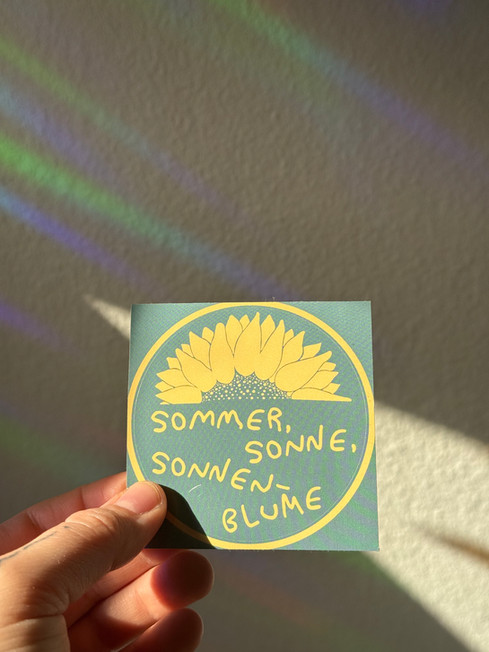 SOMMER,
SONNE,
SONNEN-
BLUME